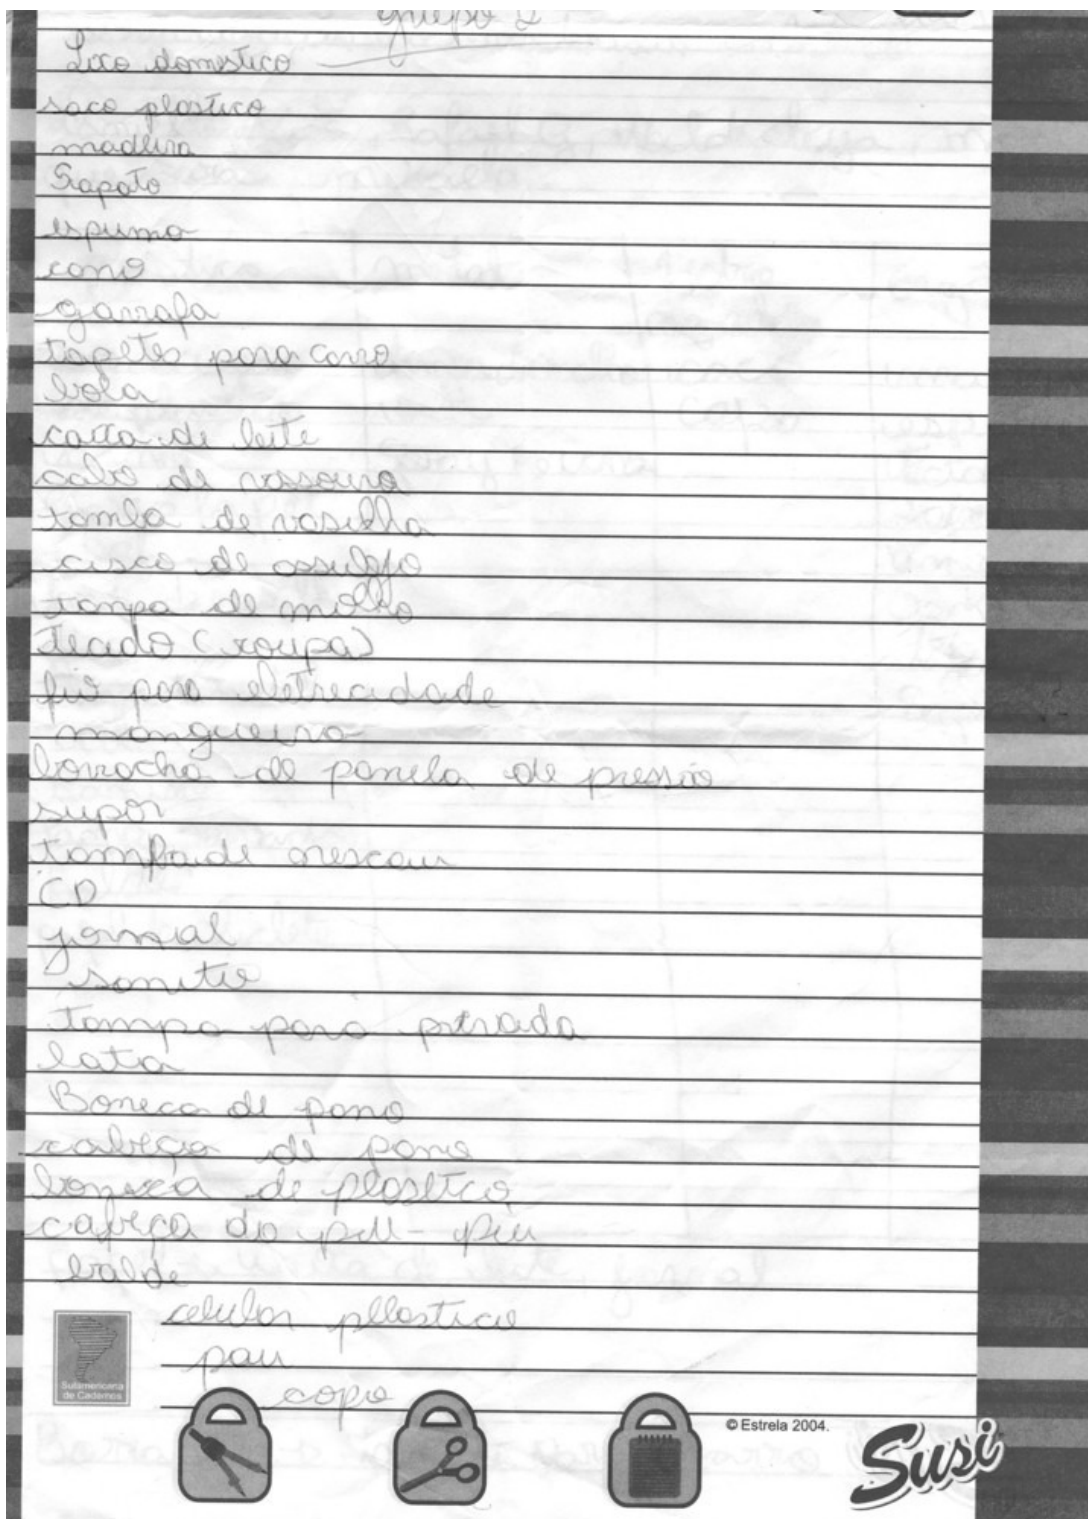 grupo
Lixo domestico
saco plastico
madeira
Sapato
espuma
cano
garrafa
tapetes para carro
bola
caixa de leite
cabo de vassoura
tamba de vasilha
cisco de assulejo
tampa de milho
tecido (roupa)
fio para eletrecidade
mangueira
borracha de panela de pressão
supor
tampa de nescau
CD
jornal
tampa para privada
lata
Boneca de pano
cabeça de pano
boneca de plastico
cabeça do piu-piu
balde
celular pllastico
pau
copo
Sulamericana
de Cadernos
© Estrela 2004.
Susi